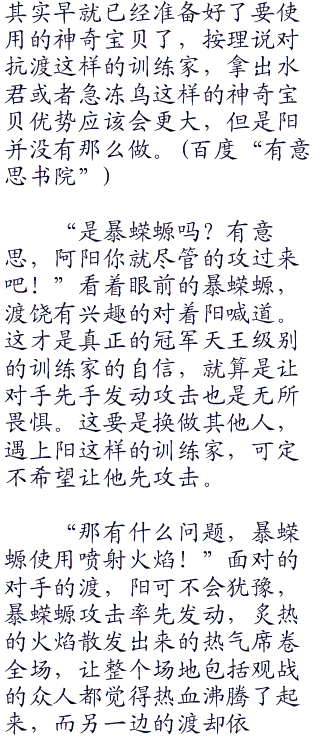 其实早就已经准备好了要使
用的神奇宝贝了，按理说对
抗渡这样的训练家，拿出水
君或者急冻鸟这样的神奇宝
贝优势应该会更大，但是阳
并没有那么做。（百度“有意
思书院”）
“是暴蝾螈吗？有意
思，阿阳你就尽管的攻过来
吧！”看着眼前的暴蝾螈，
渡饶有兴趣的对着阳喊道。
这才是真正的冠军天王级别
的训练家的自信，就算是让
对手先手发动攻击也是无所
畏惧。这要是换做其他人，
遇上阳这样的训练家，可定
不希望让他先攻击。
“那有什么问题，暴蝾
螈使用喷射火焰！”面对的
对手的渡，阳可不会犹豫，
暴蝾螈攻击率先发动，炙热
的火焰散发出来的热气席卷
全场，让整个场地包括观战
的众人都觉得热血沸腾了起
来，而另一边的渡却依